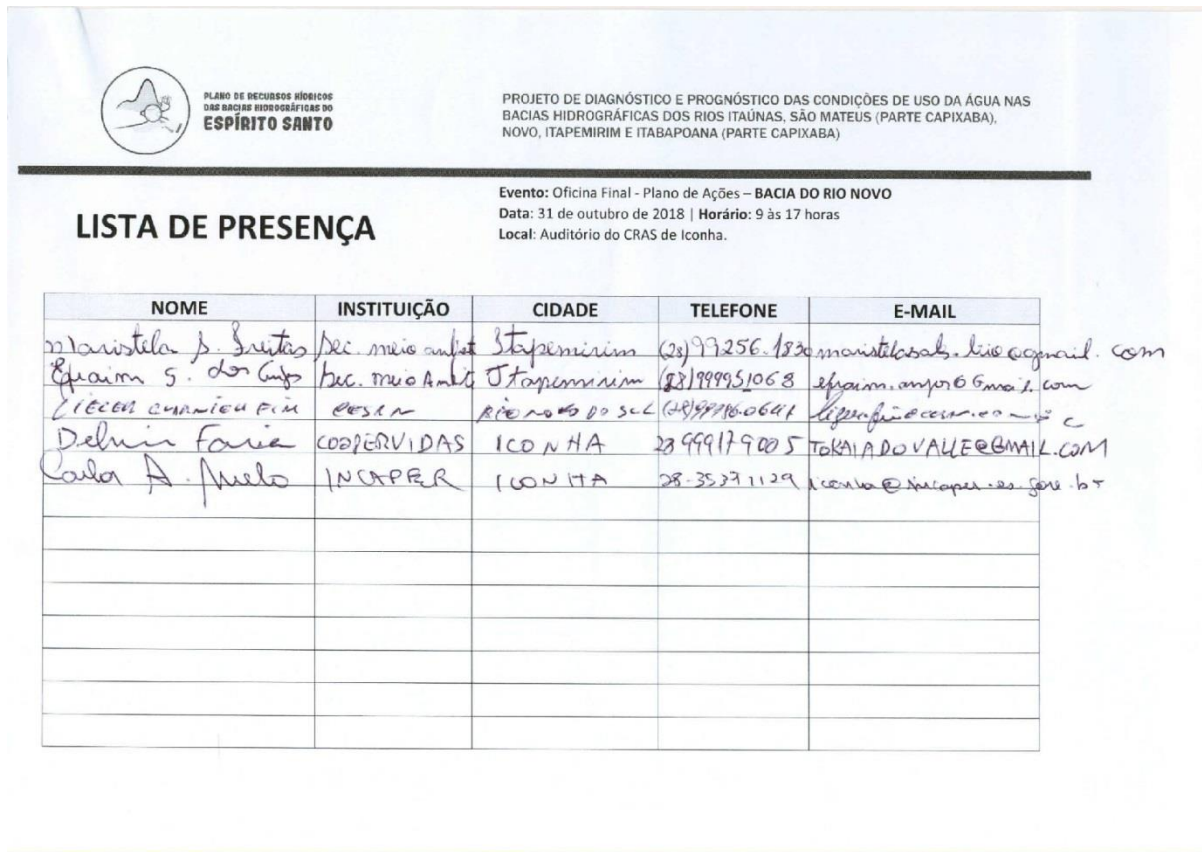 PLANO DE RECURSOS HÍDRICOS
DAS BACIAS HIDROGRÁFICAS DO
ESPÍRITO SANTO
PROJETO DE DIAGNÓSTICO E PROGNÓSTICO DAS CONDIÇÕES DE USO DA ÁGUA NAS
BACIAS HIDROGRÁFICAS DOS RIOS ITAÚNAS, SÃO MATEUS (PARTE CAPIXABA),
NOVO, ITAPEMIRIM E ITABAPOANA (PARTE CAPIXABA)
Evento: Oficina Final - Plano de Ações – BACIA DO RIO NOVO
Data: 31 de outubro de 2018 | Horário: 9 às 17 horas
Local: Auditório do CRAS de Iconha.
LISTA DE PRESENÇA
NOME INSTITUIÇÃO CIDADE TELEFONE E-MAIL
Maristela S. Freitas Sec. meio Itapemirim (28) 99256.1830
Efraim S. dos Anjos Sec. meio Amb Itapemirim (28) 999951068
CESAN RIO NOVO DO SUL
Delmir Faria COOPERVIDAS ICONHA 28 999179005 TOKAIADOVALLE@GMAIL.COM
Carla A. INCAPER ICONHA iconha@incaper.es.gov.br